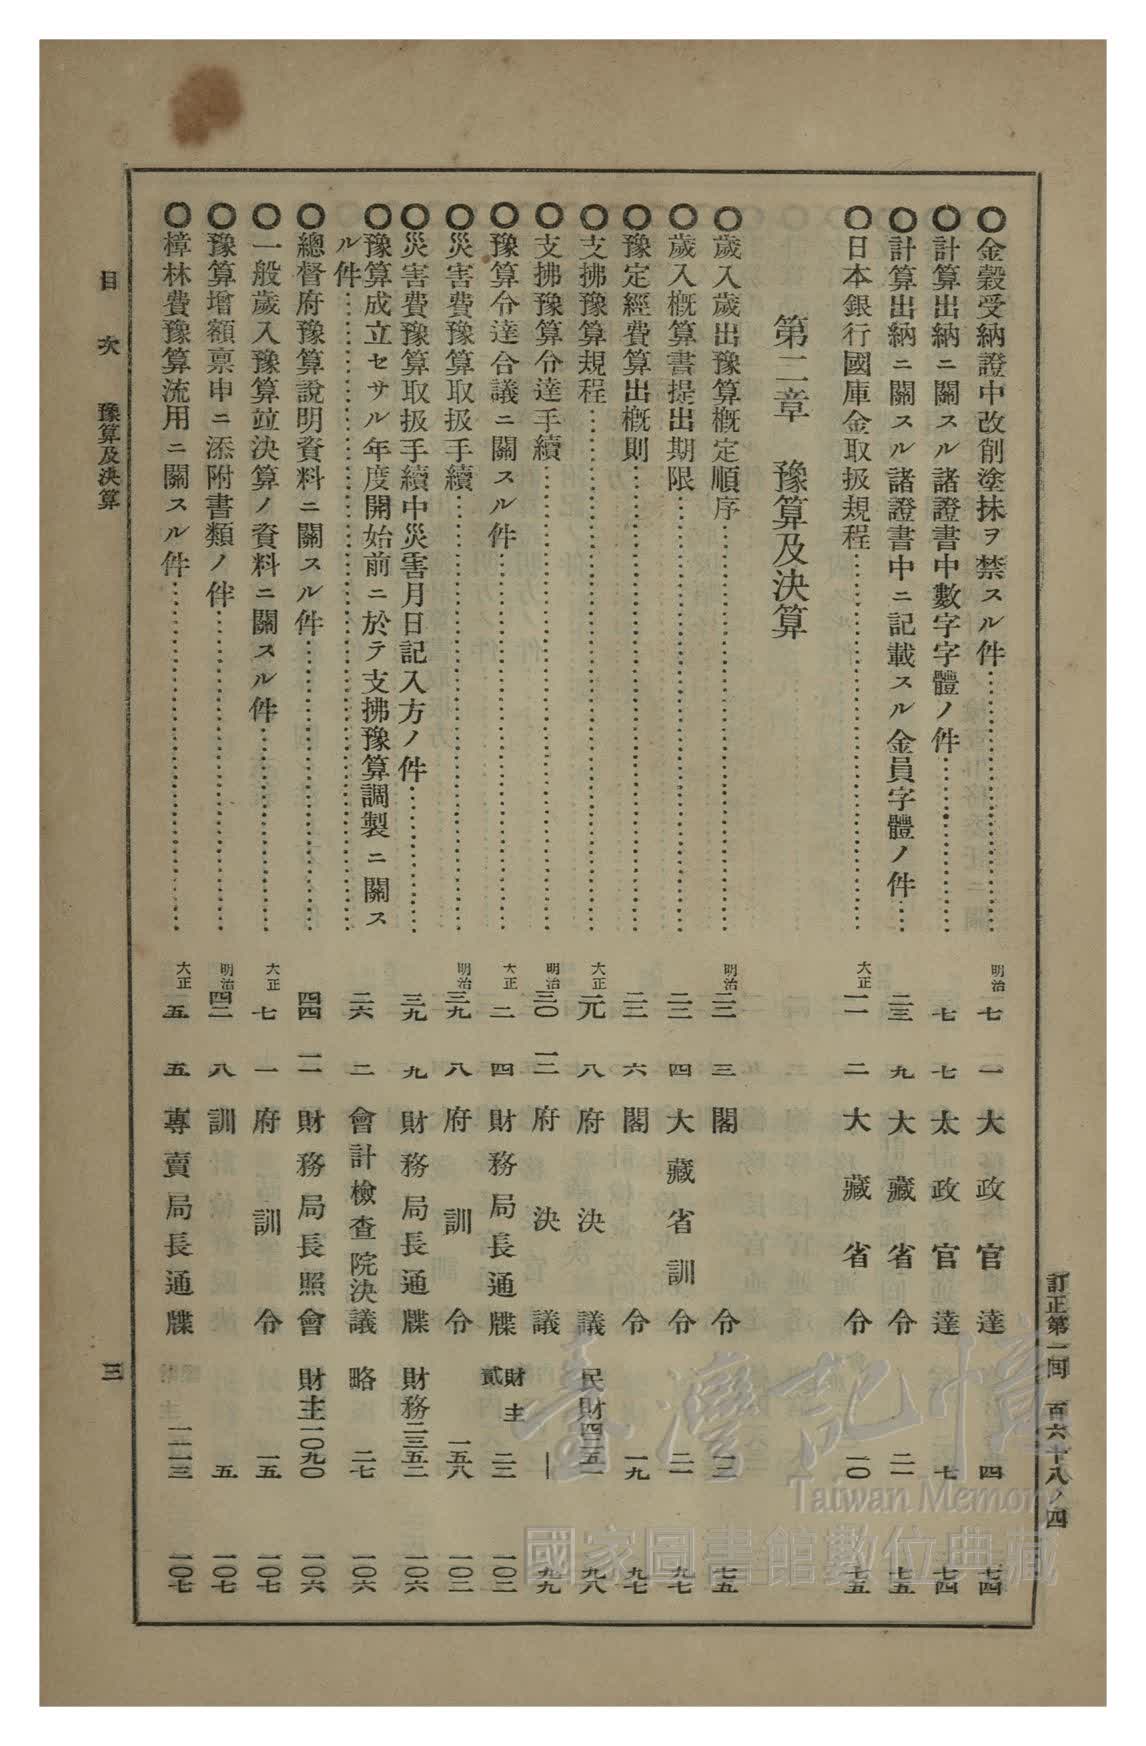 訂正第一囘 百六十八ノ四
〇金穀受納證中改削塗抹ヲ禁スル件 明治 七 一 大政官達 四 七四
〇計算出納ニ關スル諸證書中數字字體ノ件 七 七 太政官達 七 七四
〇計算出納ニ關スル諸證書中ニ記載スル金員字體ノ件 二三 九 大藏省令 二一 七五
〇日本銀行國庫金取扱規程 大正 一一 二 大藏省令 一〇 七五
第二章 豫算及決算
〇歲入歲出豫算概定順序 明治 二二 三 閣令 一二 七五
〇歲入概算書提出期限 二二 四 大藏省訓令 二一 九七
〇豫定經費算出概則 二二 六 閣令 一九 九七
〇支拂豫算規程 大正 元 八 府決議 民財四二五一 九八
〇支拂豫算分達手續 明治 三〇 一二 府決議 — 九九
〇豫算分達合議ニ關スル件 大正 二 四 財務局長通牒 財主貳 二二 一〇二
〇災害費豫算取扱手續 明治 三九 八 府訓令 一五八 一〇二
〇災害費豫算取扱手續中災害月日記入方ノ件 三九 九 財務局長通牒 財務二三五二 一〇六
〇豫算成立セサル年度開始前ニ於テ支拂豫算調製ニ關ス
ル件 二六 二 會計檢查院決議 略 二七 一〇六
〇總督府豫算說明資料ニ關スル件 四四 一一 財務局長照會 財主一〇九〇 一〇六
〇一般歲入豫算竝決算ノ資料ニ關スル件 大正 七 一 府訓令 一五 一〇七
〇豫算增額禀申ニ添附書類ノ件 明治 四二 八 訓令 五 一〇七
〇樟林費豫算流用ニ關スル件 大正 五 五 專賣局長通牒 一一一三 一〇七
目次 豫算及決算
三
臺灣記憶
Taiwan Memory
國家圖書館數位典藏